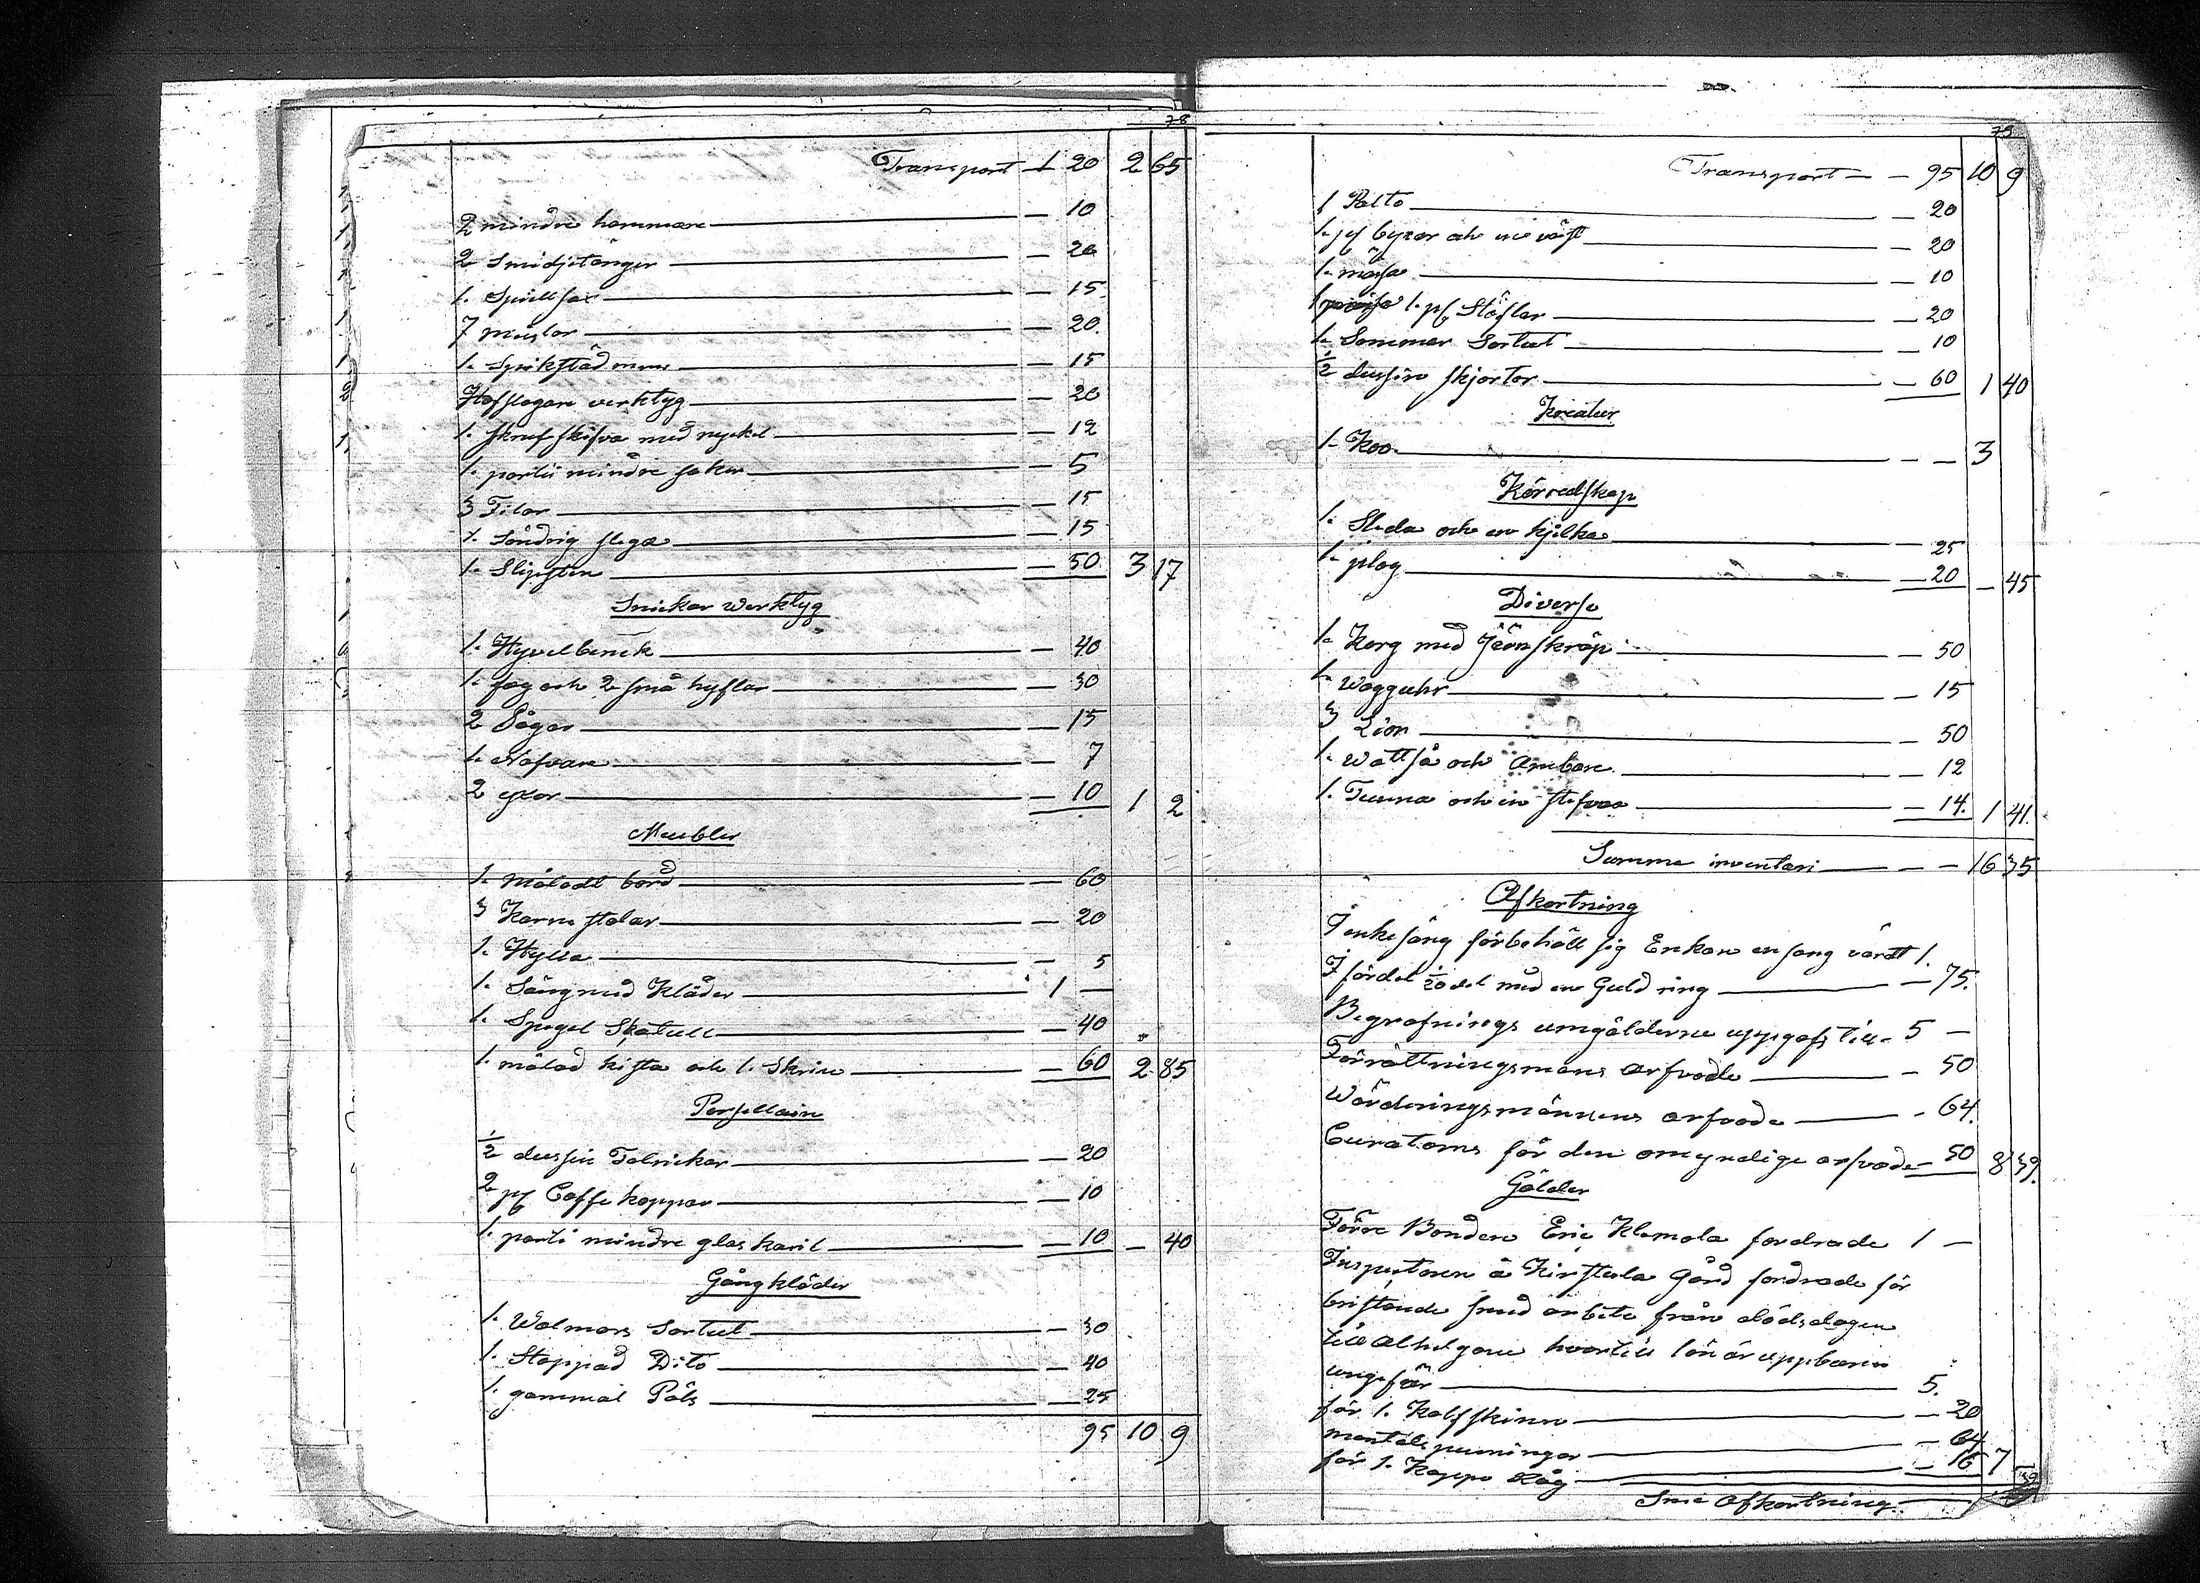 78
Transport 1 20 2 65
2 mindre hammare — 10
2 Smidjetänger — 20
1. Spällsax — 15
7 mäslar — 20.
1. Spikstäd mm — 15
Hofslagare verktyg — 20
1. skrufskifva med nyckel — 12
1. partie mindre saker — 5
3 Filar — 15
1. Söndrig slega — 15
1. Slipsten — 50 3 17
Snickar Werktyg
1. Hyvelbenck — 40
1. fog och 2 små hyflar — 30
2 Sågar — 15
1. Nafvare — 7
2 yxor — 10 1 2
Meubler
1. Måladt bord — 60
3 Karmstolar — 20
1. Hylla — 5
1. Säng med Kläder 1 —
1. Spegel Skatull — 40
1. målad kista och 1. Skrin — 60 2 85
Porsellain
½ dussin Talrickar — 20
2 pr Caffe koppar — 10
1. parti mindre glas karil — 10 — 40
Gångkläder
1. Walmars Sortut — 30
1. Stoppad Dito — 40
1. gammal Päls — 25
95 10 9
79
Transport — 95 10 9
1 Palto — 20
1. pr byxor och en väst — 20
1. mössa — 10
1. pr Stöflar — 20
1. Sommar Sortut — 10
½ dussin skjortor — 60 1 40
Kreatur
1. Koo — — 3
Körredskap
1. Släda och en kjelka — 25
1. plog — 20 — 45
Diverse
1. Korg med Jernskräp — 50
1. Wägguhr — 15
3 Liar — 50
1. Wattså och Ämbare — 12
1. Tunna och en — 14. 1 41.
Summa inventari — — 16 35
Afkortning
I enkesäng förbehöll sig Enkan en sang värdt 1.
I fördel 1/20 del med en Guld ring — 75.
Begrafnings omgälderne uppgafs till 5 —
Förrättningsmans arfvode — 50
Wärderingsmännens arfvode — 64.
Curatorns för den omyndige arfvode — 50 8 39.
Gälder
Förre Bonden Eric Klemola fordrade 1 —
Inspectoren å Kirstula Gård fordrade för
bristande smid arbete från dödsdagen
till alhelgona hvartill lön är uppburen
ungefär — 5.
för 1. Kalfskinn — 20
mantals penningar — 64
för 1. Kappe Råg — 16 7
Sma Afkortning